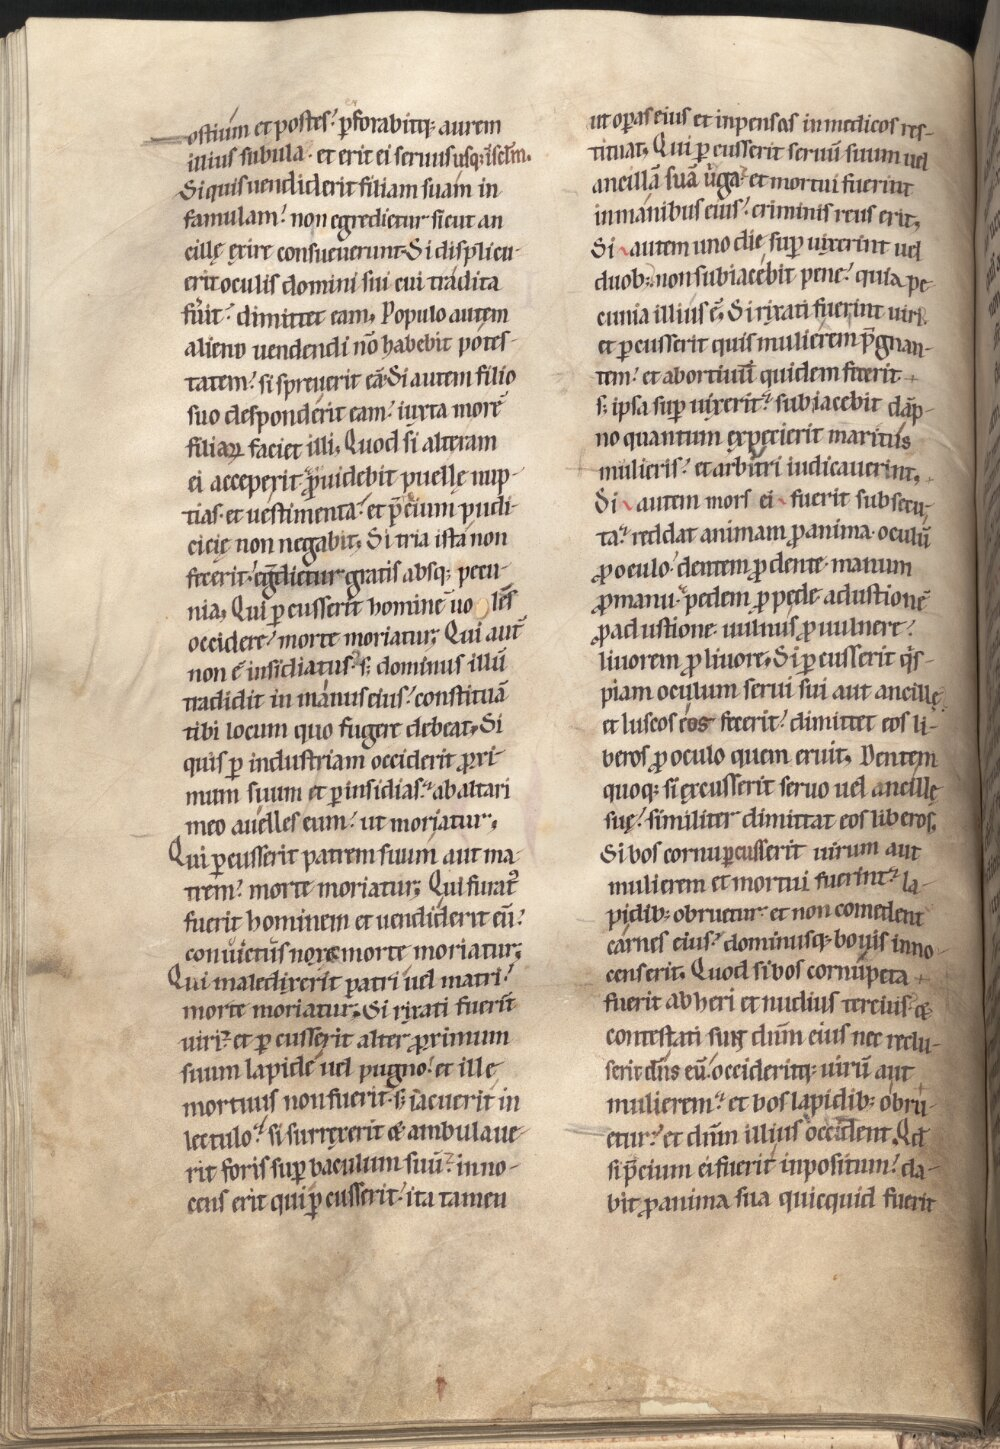 ostium et postes? ꝑforabitq; aurem
illius subula· et erit ei seruus usq; ĩsclm̃.
Si quis uendiderit filiam suam in
famulam? non egredietur sicut an
cillę exire consueuerunt· Si displicu-
erit oculis domini sui cui tradita
fuit? dimittet eam, Populo autem
alieno uendendi nõ habebit potes-
tatem? si spreuerit eã· Si autem filio
suo desponderit eam? iuxta morẽ
filiaꝝ faciet illi, Quod si alteram
ei acceperit ꝓuidebit puellę nup-
tias· et uestimenta? et p̃cium pudi-
cicię non negabit, Si tria ista non
fecerit· eg̃dietur gratis absq; pecu-
nia, Qui ꝑcusserit hominẽ uo lẽs
occidere? morte moriatur, Qui aut̃
non ẽ insidiatus? s; dominus illũ
tradidit in manus eius? constituã
tibi locum quo fugere debeat, Si
quis ꝑ industriam occiderit ꝓxi
mum suum et ꝑ insidias? ab altari
meo auelles eum? ut moriatur,
Qui ꝑcusserit patrem suum aut ma-
trem? morte moriatur, Qui furat᷒
fuerit hominem et uendiderit eũ?
conuictus noxę morte moriatur,
Qui maledixerit patri uel matri?
morte moriatur, Si rixati fueri̅t
uiri? et ꝑcusserit alter ꝓximum
suum lapide uel pugno? et ille
mortuus non fuerit· s; iacuerit in
lectulo? si surrexerit & ambulaue-
rit foris suꝑ baculum suũ? inno-
cens erit qui ꝑcusserit· ita tamen
ut oꝑas eius et inpensas in medicos res-
tituat, Qui ꝑcusserit seruũ suum uel
ancillã suã ũga? et mortui fuerint
in manibus eius? criminis reus erit,
Si autem uno die suꝑuixerint uel
duob; non subiacebit pene? quia pe-
cunia illius ẽ, Si rixati fuerint uiri
et ꝑcusserit quis mulierem p̃gnan-
tem? et abortiuũ quidem fecerit
s; ipsa suꝑuixerit? subiacebit dãp-
no quantum expecierit maritus
mulieris? et arbitri iudicauerint,
Si autem mors ei fuerit subsecu-
ta? reddat animam ꝓ anima· oculũ
ꝓ oculo· dentem ꝓ dente· manum
ꝓ manu· pedem ꝓ pede· adustionẽ
ꝓ adustione· uulnus ꝓ uulnere?
liuorem ꝓ liuore, Si ꝑcusserit q̃s-
piam oculum serui sui aut ancillę
et luscos eos fecerit? dimittet eos li-
beros ꝓ oculo quem eruit, Dentem
quoq; si excusserit seruo uel ancillę
suę? similiter dimittat eos liberos,
Si bos cornu ꝑcusserit uirum aut
mulierem et mortui fuerint? la-
pidib; obruetur· et non comedent
carnes eius? dominusq; bouis inno-
cens erit, Quod si bos cornupeta
fuerit ab heri et nudius tercius· &
contestati sunt dñm eius nec reclu-
serit dñs eũ· occideritq; uirũ aut
mulierem? et bos lapidib; obru-
etur? et dñm illius occident, Qd̃
si p̃cium ei fuerit inpositum? da-
bit ꝓ anima sua quicquid fuerit